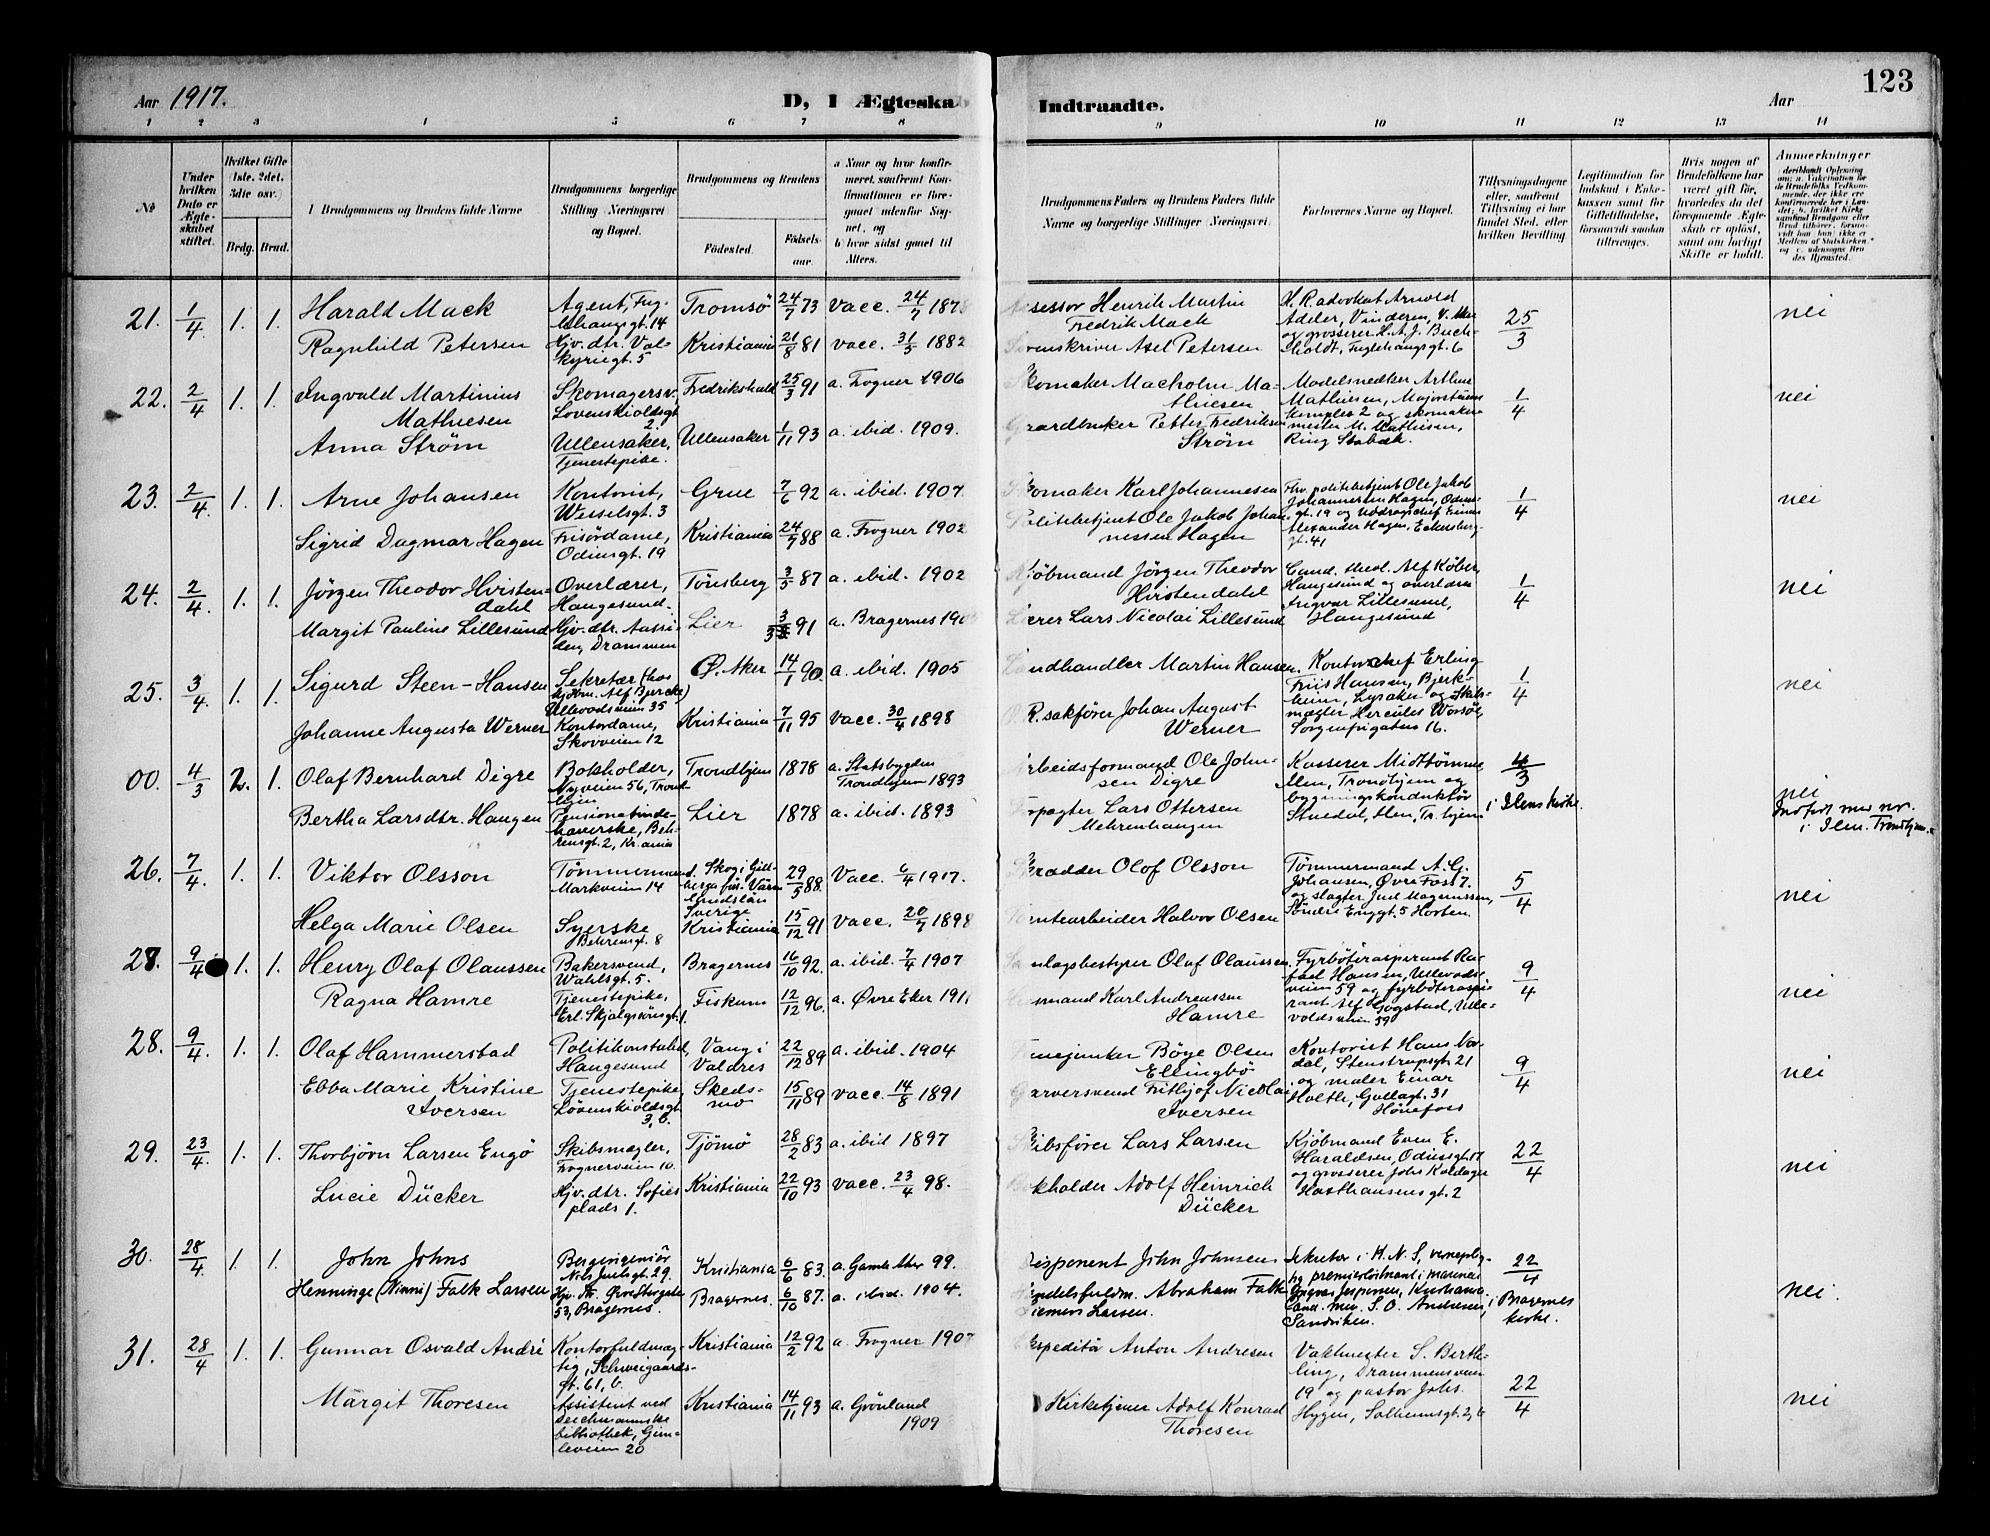 Aar 1917.
D, 1 Ægteska
Indtraadte.
Aar
123
1 2 3 4 5 6 7 8
9 10 11 12 13 14
№
Under hvilken Dato er Ægteskabet stiftet.
Hvilket Gifte 1ste, 2det, 3die osv.
Brdg. Brud.
1 Brudgommens og Brudens fulde Navne
Brudgommens borgerlige Stilling Næringsvei og Bopæl.
Brudgommens og Brudens
Fødested.
Fødselsaar.
a Naar og hvor konfirmeret, samt om Konfirmationen er foregaaet udenfor Sognet, og
b) hvor sidst gaaet til Alters.
Brudgommens Faders og Brudens Faders fulde Navne og borgerlige Stillinger Næringsvei
Forlovernes Navne og Bopæl.
Tillysningsdagene eller, saafremt Tillysning ei har fundet Sted, efter hvilken Bevilling
Legitimation for Indskud i Enkekassen samt for Giftetilladelse, forsaavidt saadan tiltrænges.
Hvis nogen af Brudefolkene har været gift før, hvorledes da det foregaaende Ægteskab er opløst, samt om lovligt Skifte er holdt.
Anmerkninger
21. 1/4 1. 1. Harald Mack
Agent, Fuglehaugsgt. 14
Tromsö 24/7 73 Vacc. 24/7 187
Ragnhild Petersen
Hjv. dtr. Valkyriegt. 5
Kristiania 21/8 81 vacc. 31/5 1882
sessor Henrik Martin Fredrik Mack
venskriver Axel Petersen
H. R. advokat Arnold
og grosserer H. A. J. Buchholdt, Fuglehaugsgt. 6
25/3
nei
22. 2/4 1. 1. Ingvald Martinius Mathiesen
Skomagersv. Lövenskioldsgt 2.
Fredrikshald 25/3 91 a. Frogner 1906
Anna Ström
Ullensaker, Tjenestepike.
Ullensaker 1/11 93 a. ibid. 1909.
komaker Macholm Mathiesen
Gaardbruker Petter Fredriksen Ström
Modelsnedker Arthur Mathiesen, Majorstuen komplex 2 og skomakermester M. Mathiesen, Ring Stabæk.
1/4
nei
23. 2/4 1. 1. Arne Johansen
Kontorist, Wesselsgt. 3
Grue 7/6 92 a. ibid. 1907.
Sigrid Dagmar Hagen
Frisördame, Odinsgt. 19
Kristiania 24/7 88 a. Frogner 1902
komaker Karl Johannesen
Politibetjent Ole Jakob Johannessen Hagen
Fhv. politibetjent Ole Jakob Johannessen Hagen, Odinsgt. 19 og
Alexander Hagen, Eckersberggt. 41
1/4
nei
24. 2/4 1. 1. Jörgen Theodor Hvistendahl
Overlærer, Haugesund.
Tönsberg 3/5 87 a. ibid. 1902
Margit Pauline Lillesund
Hjv. dtr. Aassiden, Drammen
Lier 91 a. Bragernes 190
Kjöbmand Jörgen Theodor Hvistendahl
Lærer Lars Nicolai Lillesund
Cand. theol. Alf Köber, Haugesund og overlærer Ingvar Lillesund, Haugesund
1/4
nei
25. 3/4 1. 1. Sigurd Steen-Hansen
Sekretær (hos kjöbm. Alf Bjercke) Ullevoldsveien 35
Ø. Aker 14/1 90. a. ibid. 1905
Johanne Augusta Werner
Kontordame, Skovveien 12
Kristiania 7/11 95 vacc. 30/4 1898
Landhandler Martin Hansen.
O. R. sakförer Johan August Werner
Kontorchef Erling Friis Hansen, Bjerkheim, Lysaker og Skibsmægler Hercules Worsöe, Sorgenfrigaten 16.
1/4
nei
00. 4/3 2. 1. Olaf Bernhard Digre
Bokholder, Nyveien 56, Trondhjem
Trondhjem 1878 a. Statsbygden Trondhjem 1893
Bertha Larsdtr. Haugen
Pensionatindehaverske, Behrensgt. 2, Kr.ania
Lier 1878 a. ibid. 1893
rbeidsformand Ole Johnsen Digre
Forpagter Lars Ottersen Mehrenhaugen
Kasserer Midttömme, Ilen, Trondhjem og bygningskonduktör Stuedal, Ilen, Tr.hjem
4/3
i Ilens kirke.
nei
Indfört med nr. i Ilen. Trondhjem.
26. 7/4 1. 1. Viktor Olsson
Tömmermand. Markveien 14
Skog i Gillberga Sverige 29/5 88. Vacc. 6/4 1917.
Helga Marie Olsen
Syerske Behrensgt. 8
Kristiania 15/12 91 Vacc. 20/7 1898
Skrædder Olof Olsson
Tomtearbeider Halvor Olsen
Tömmermand A. G. Johansen, Øvre Foss 7. og slagter Juel Magnussen, Söndre Enggt. 5 Horten.
5/4
nei
28. 9/4 1. 1. Henry Olaf Olaussen
Bakersvend, Wahlsgt. 5.
Bragernes 16/10 92. a. ibid. 7/4 1907
Ragna Hamre
Tjenestepike, Erl. Skjalgsönsgt. 1.
Fiskum 12/12 96. a. Øvre Eker 191
Samlagsbestyrer Olaf Olaussen.
mand Karl Andreassen Hamre
Fyrböteraspirant Rafael Hansen, Ullevoldsveien 59 og fyrböteraspirant Alf Gogstad, Ullevoldsveien 59
9/4
nei
28. 9/4 1. 1. Olaf Hammerstad
Politikonstabel, Haugesund
Vang i Valdres 22/12 89 a. ibid. 1904
Ebba Marie Kristine Iversen
Tjenestepike Lövenskioldsgt 3, b.
Skedsmo 15/11 89 vacc. 14/8 1891
Böye Olsen Ellingbö
Garversvend Fritjof Nicolai Iversen
Kontorist Hans Nordal, Stenstrupsgt. 21 og maler Einar Holth, Gullagt. 31 Hönefoss
9/4
nei
29. 23/4 1. 1. Thorbjörn Larsen Engö
Skibsmægler, Frognerveien 10
Tjömö 28/2 83 a. ibid 1897
Lucie Dücker
Hjv. dtr. Sofies plads 1.
Kristiania 22/10 93 vacc. 23/4 98.
Skibsförer Lars Larsen
Bokholder Adolf Heinrich Dücker
Kjöbmand Even E. Haraldsen, Odinsgt. 17 og grosserer Johs Kaldager Hasthausensgt. 2
22/4
nei
30. 28/4 1. 1. John Johns
Bergingeniör Nils Juelsgt. 29.
Kristiania 6/6 83. a. Gamle Aker 99.
Henninge (Ninni) Falk Larsen
Hjv. dtr. Øvre Storgate 53, Bragernes.
Bragernes. 6/10 87. a. ibid. 1904.
Disponent John Johnsen.
Handelsfuldm. Abraham Falk Siemers Larsen.
Sekretær i K. N. S, vernepligtig premierlöitnant i marinen Yngvar Jespersen, Kristiania. Cand. min. S. O. Andresen, Sandviken.
22/4
i Bragernes kirke.
nei.
31. 28/4 1. 1. Gunnar Osvald André
Kontorfuldmægtig, Schweigaardsgt. 61, b.
Kristiania 12/2 92 a. Frogner 1907
Margit Thoresen
Assistent ved Deichmannske bibliothek, Gimleveien 20
Kristiania 14/11 93 a. Grönland 1909
Ekspeditör Anton Andresen
Kirketjener Adolf Konrad Thoresen
Vaktmester S. Berthling, Drammensveien 19 og pastor Johs. Hygen, Solheimsgt. 2, b
22/4
nei